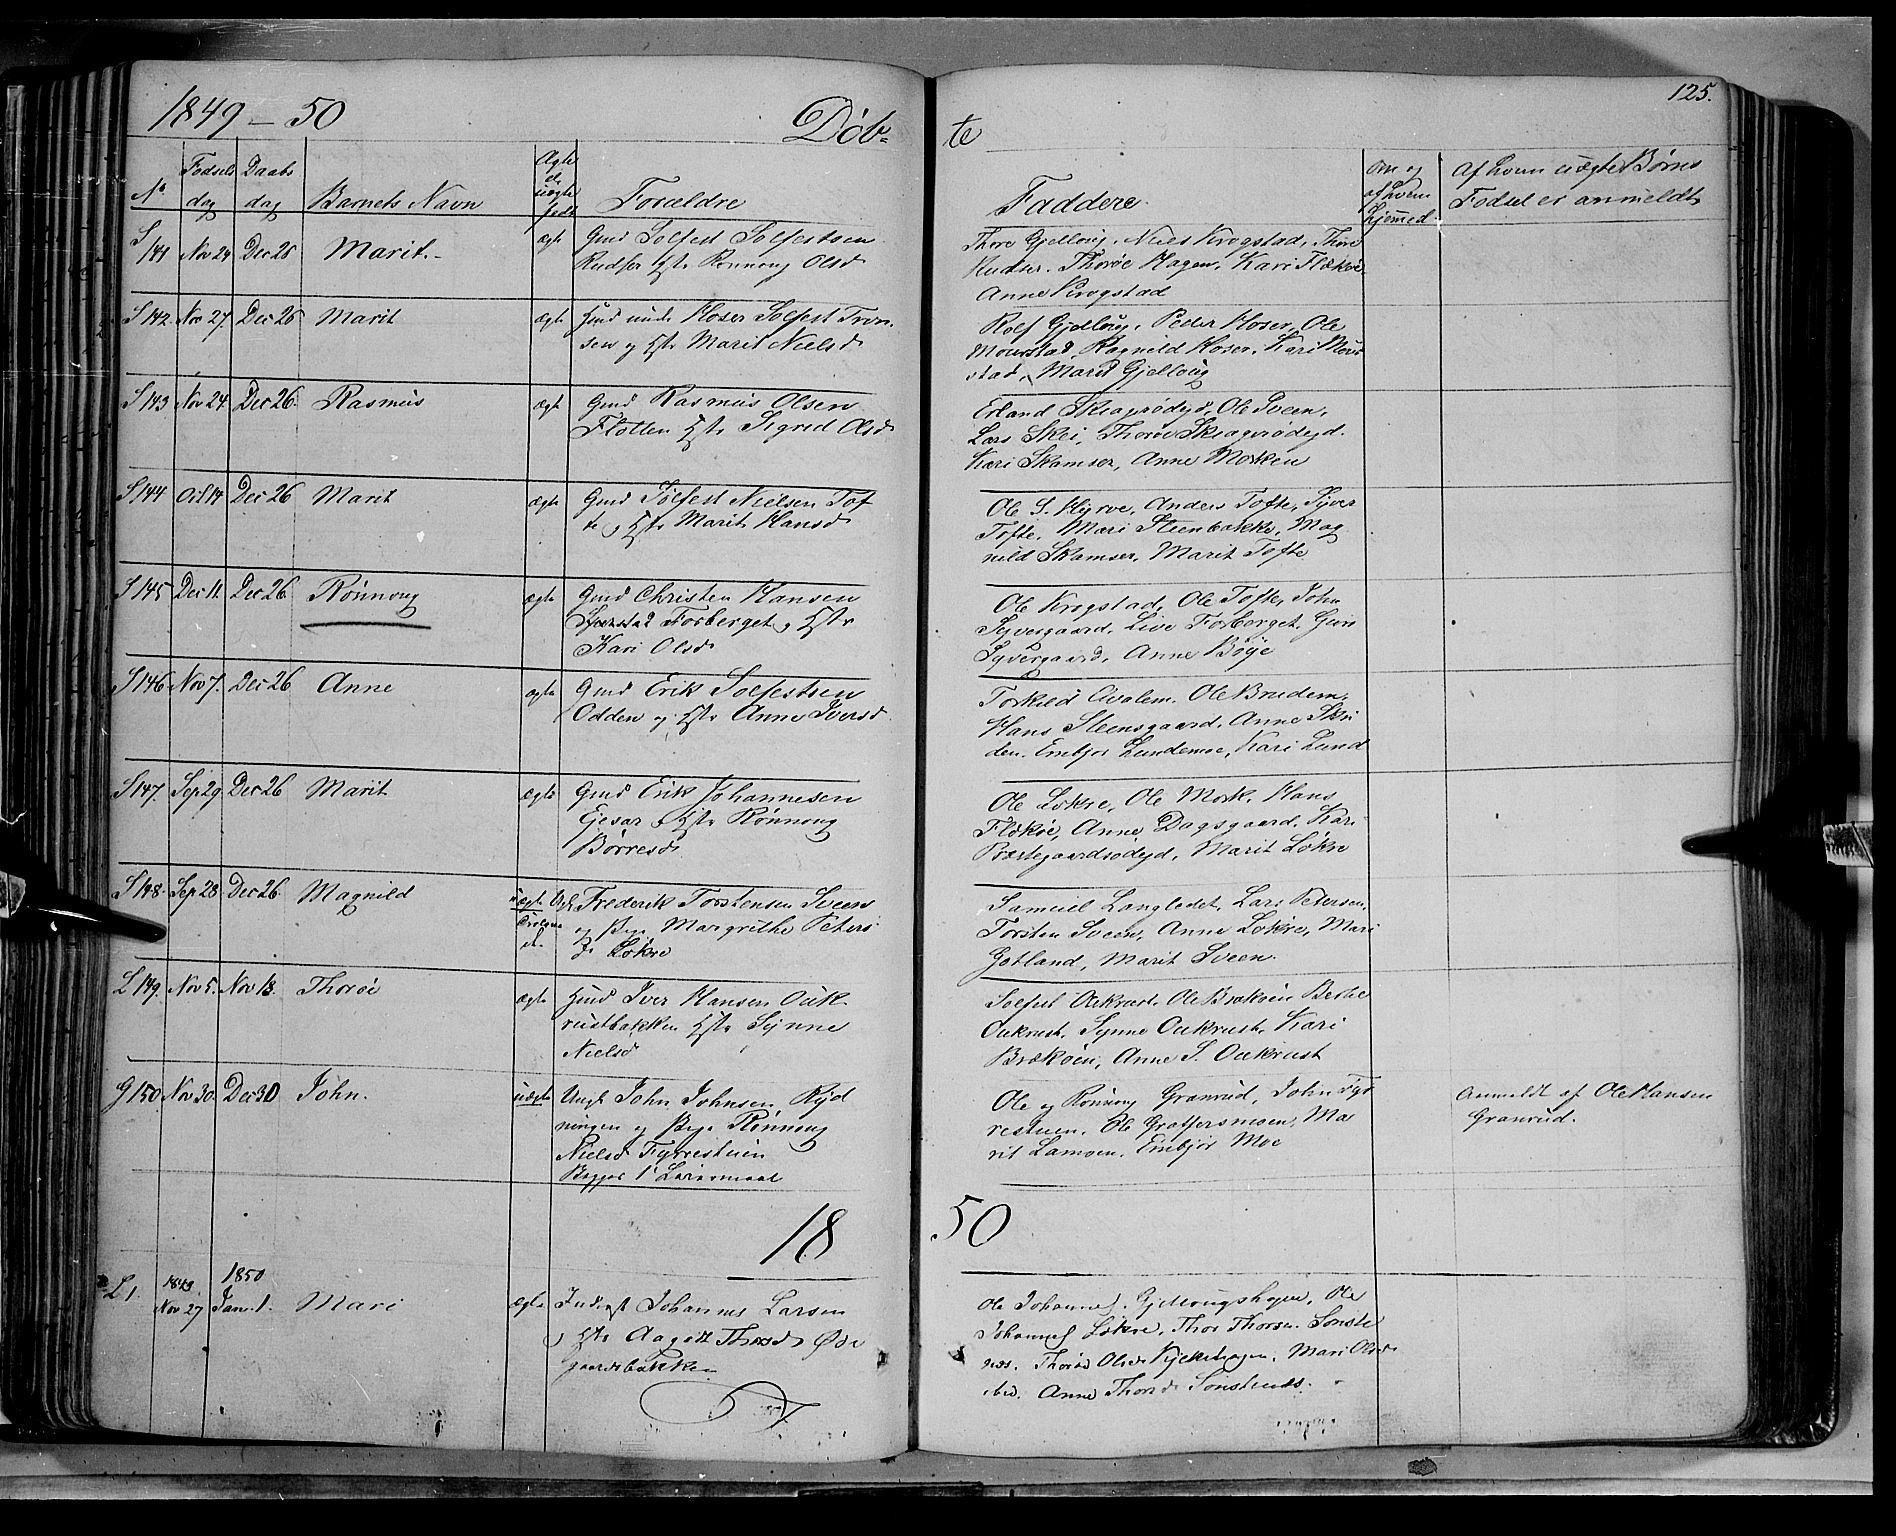 1849 – 50
Døb-
te
125.
No
Fødsels dag
Daabs dag
Barnets Navn
Ægte el. uægte født
Forældre
Faddere
Om og af hvem hjemmed
Af hvem uægte Børns
Fødsel er anmeldt
S 141 Nov 29 Dec 26 Marit. ægte Gmd Solfest Solfestsen
Rudser Hstr Rønnoug Olsd
Thore Gjelloug, Niels Krogstad, Thore
Rudser. Thorøe Hagen, Kari Flækøe
Anne Krogstad
S 142. Nov 27. Dec 26 Marit ægte Hmd under Hoser Solfest Tron
sen og Hstr Marit Nielsd
Rolf Gjelloug, Peder Hoser, Ole
Mourstad, Ragnild Hoser, Kari Mour
stad, Marit Gjelloug
S 143 Nov 24 Dec 26. Rasmus ægt Gmd Rasmus Olsen
Flotten Hstr Sigrid Olsd
Erland Skiagrødegd, Ole Sveen,
Lars Skei, Thorøe Skiagrødegd.
Kari Skamser, Anne Morken
S 144 Oct 14 Dec 26 Marit ægte Gmd Solfest Nielsen Tof
te, Hstr Marit Hansd
Ole S. Hyrve, Anders Tofte, Syver
Tofte, Mari Steenbakke, Mag
nild Skamser, Marit Tofte
S 145 Dec 11. Dec 26 Rønnoug ægte Gmd Christen Hansen
Forberget, Hstr
Kari Olsd
Ole Krogstad, Ole Tofte, John
Syvergaard, Live Forberget, Guri
Syvergaard, Anne Bøye
S 146 Nov 7. Dec 26 Anne ægte Gmd Erik Solfestsen
Odden og Hstr Anne Iversd
Torkild Aalem, Ole Brudem,
Hans Steensgaard, Anne Ski
den. Embjør Lundemoe, Kari Lund
S 147. Sep 29. Dec 26 Marit ægte Gmd Erik Johannesen
Ejesar, Hstr Rønnoug
Børresd.
Ole Løkre, Ole Mork, Hans
Flækøe, Anne Dagsgaard, Kari
Præstegaardsødegd, Marit Løkre
S 148. Sep 28 Dec 26. Magnild uægte Frederik Torstensen Sveen
og Pige Margrethe Peters
d. Løkre
Samuel Langledet, Lars Petersen,
Torsten Sveen, Anne Løkre, Mari
Gotland, Marit Sveen.
L 149. Nov 5. Nov 18. Thorøe ægte Hmd Iver Hansen Ouk
rustbakken Hstr Synne
Nielsd
Solfest Oukrust, Ole Brækøen Berthe
Oukrust, Synne Oukrust, Kari
Brækøen, Anne S. Oukrust
G 150. Nov 30. Dec 30 John. uægte Ungk John Johnsen Ryd
ningen og Pige Rønnoug
Nielsd Fyrrestuen
Begges 1 Leiermaal
Ole og Rønnoug Granrud, John Fyr
restuen, Ole Graffersmoen, Ma
rit Lamoen, Embjør Moe
Anmeldt af Ole Hansen
Granrud.
18 50
L 1. 1849 Nov 27 1850 Jan. 1. Mari ægte Inderst Johannes Larsen
, Hstr Aagot Thorsd Øde
gaardsbakken
Ole Johannes. Gjellougshagen, Ole
Johannes Løkre, Thor Thorsen Sønste
næs. Thorøe Olsd Kjekshagen, Mari Olsd
ibid. Anne Thorsd Sønstenæs.